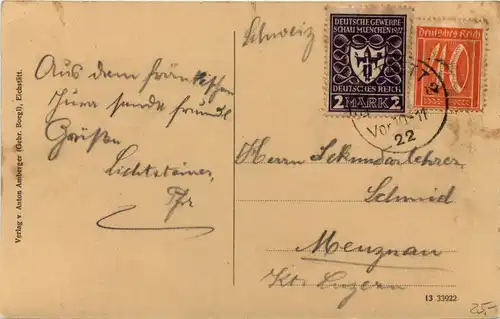 Schweiz
DEUTSCHE GEWERBE
SCHAU MUENCHEN 1922
DEUTSCHES REICH
2 MARK 2
Deutsches Reich
40
Vor 10-11
22
Aus dem fränkischen
Jura sende freundl
Grüße
Lichtsteiner,
Pfr
Herrn Sekundarlehrer
Schmid
Menznau
Kt. Luzern
Verlag v. Anton Amberger (Gebr. Boegl), Eichstätt.
13 33922
25,-